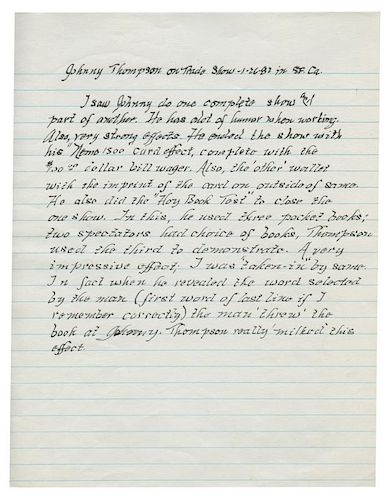 Johnny Thompson on Trade Show -1-26-82 in SF. Ca.
I saw Johnny do one complete show &
part of another. He has alot of humor when working.
Also, very strong effects. He ended the show with
his "Nemo 1500" card effect, complete with the
dollar bill wager. Also, the 'other' wallet
with the imprint of the card on outside of same.
He also did the "Hoy Book Test" to close the
one show. In this, he used three pocket books;
two spectators had choice of books, Thompson
used the third to demonstrate. A very
impressive effect; I was "taken-in" by same.
In fact when he revealed the word selected
by the man (first word of last line if I
remember correctly) the man 'threw' the
book at Johnny. Thompson really 'milked' this
effect.